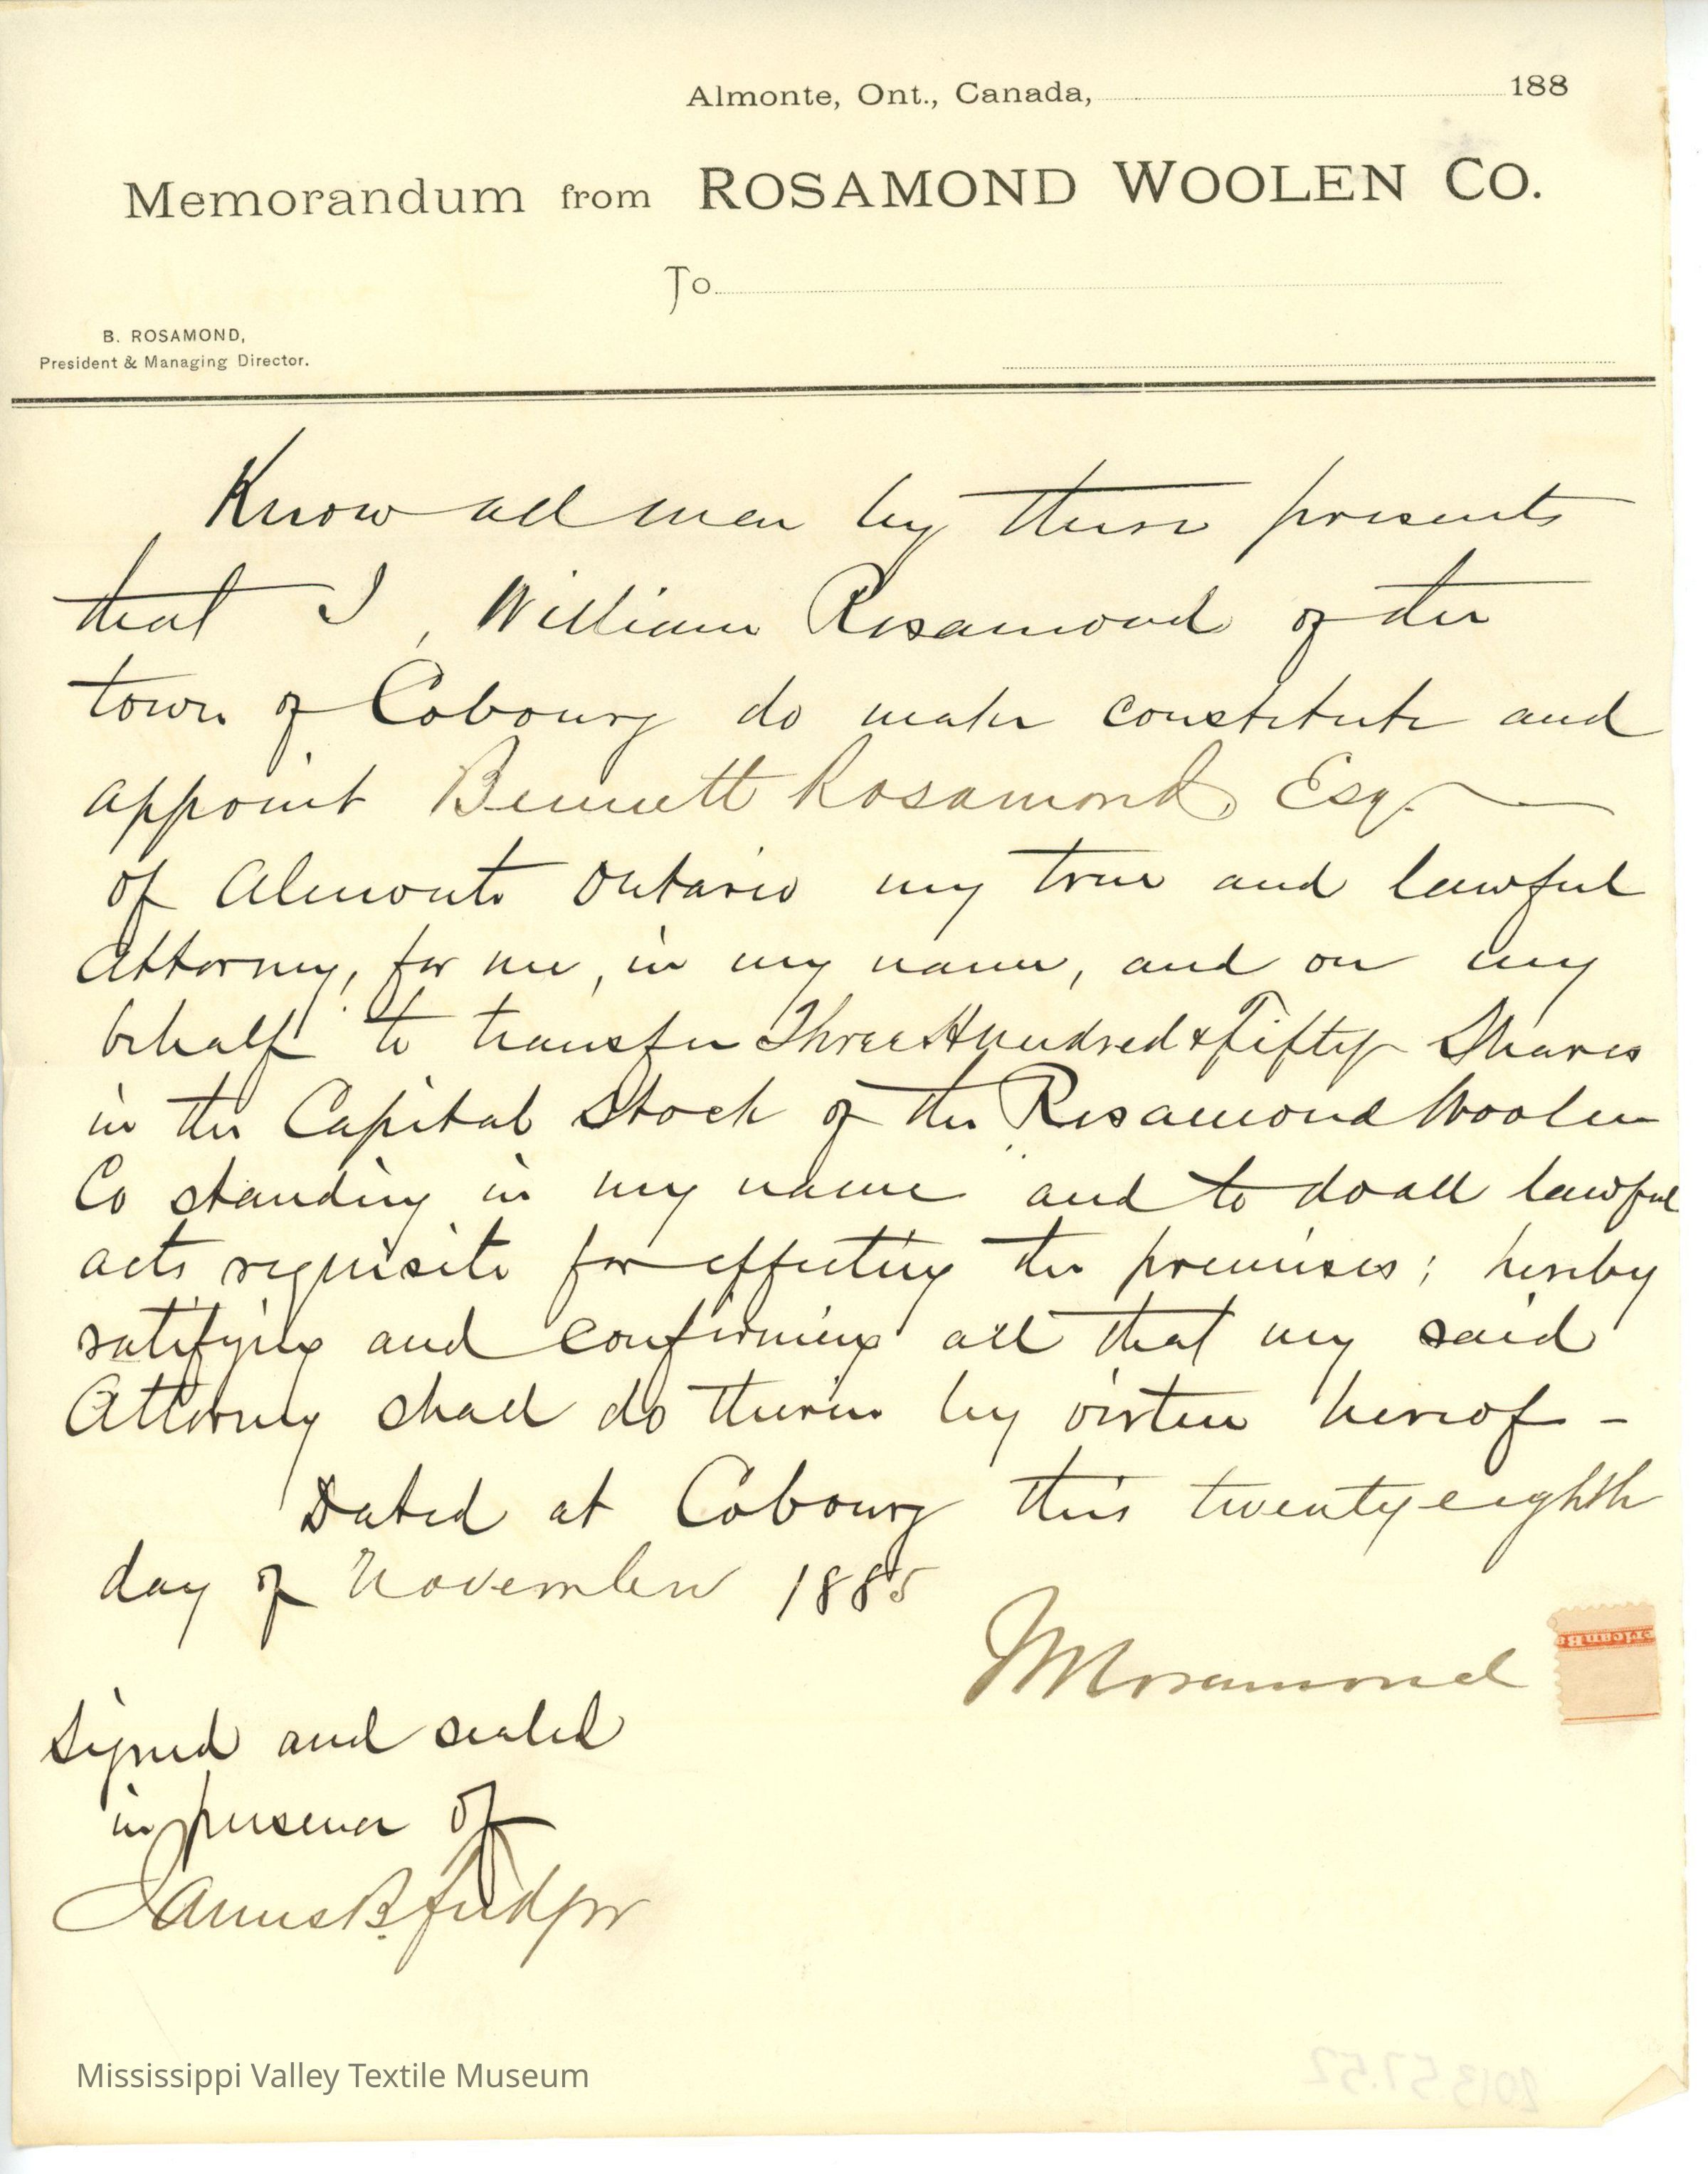 Almonte, Ont., Canada, 188
Memorandum from ROSAMOND WOOLEN CO.
To
B. ROSAMOND,
President & Managing Director.
Know all men by these presents
that I, William Rosamond of the
town of Cobourg do make constitute and
appoint Bennett Rosamond, Esq.
of Almonte Ontario my true and lawful
Attorney, for me, in my name, and on my
behalf to transfer Three Hundred & Fifty Shares
in the Capital Stock of the Rosamond Woolen
Co standing in my name and to do all lawful
acts requisite for effecting the premises; hereby
ratifying and confirming all that my said
Attorney shall do therein by virtue hereof -
Dated at Cobourg this twenty eighth
day of November 1885
WRosamond
ericanBa
Signed and sealed
in presence of
James B.
Mississippi Valley Textile Museum
2013.57.52